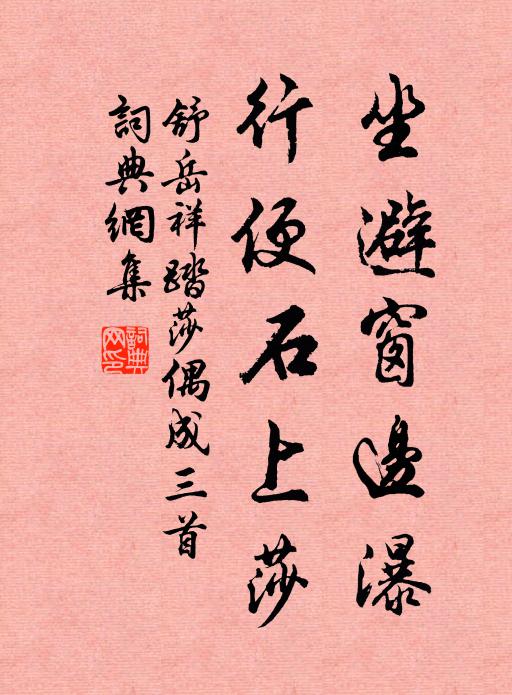 坐避窗邊瀑
行便石上莎
舒岳祥踏莎偶成三首
詞典網集
詞典网印